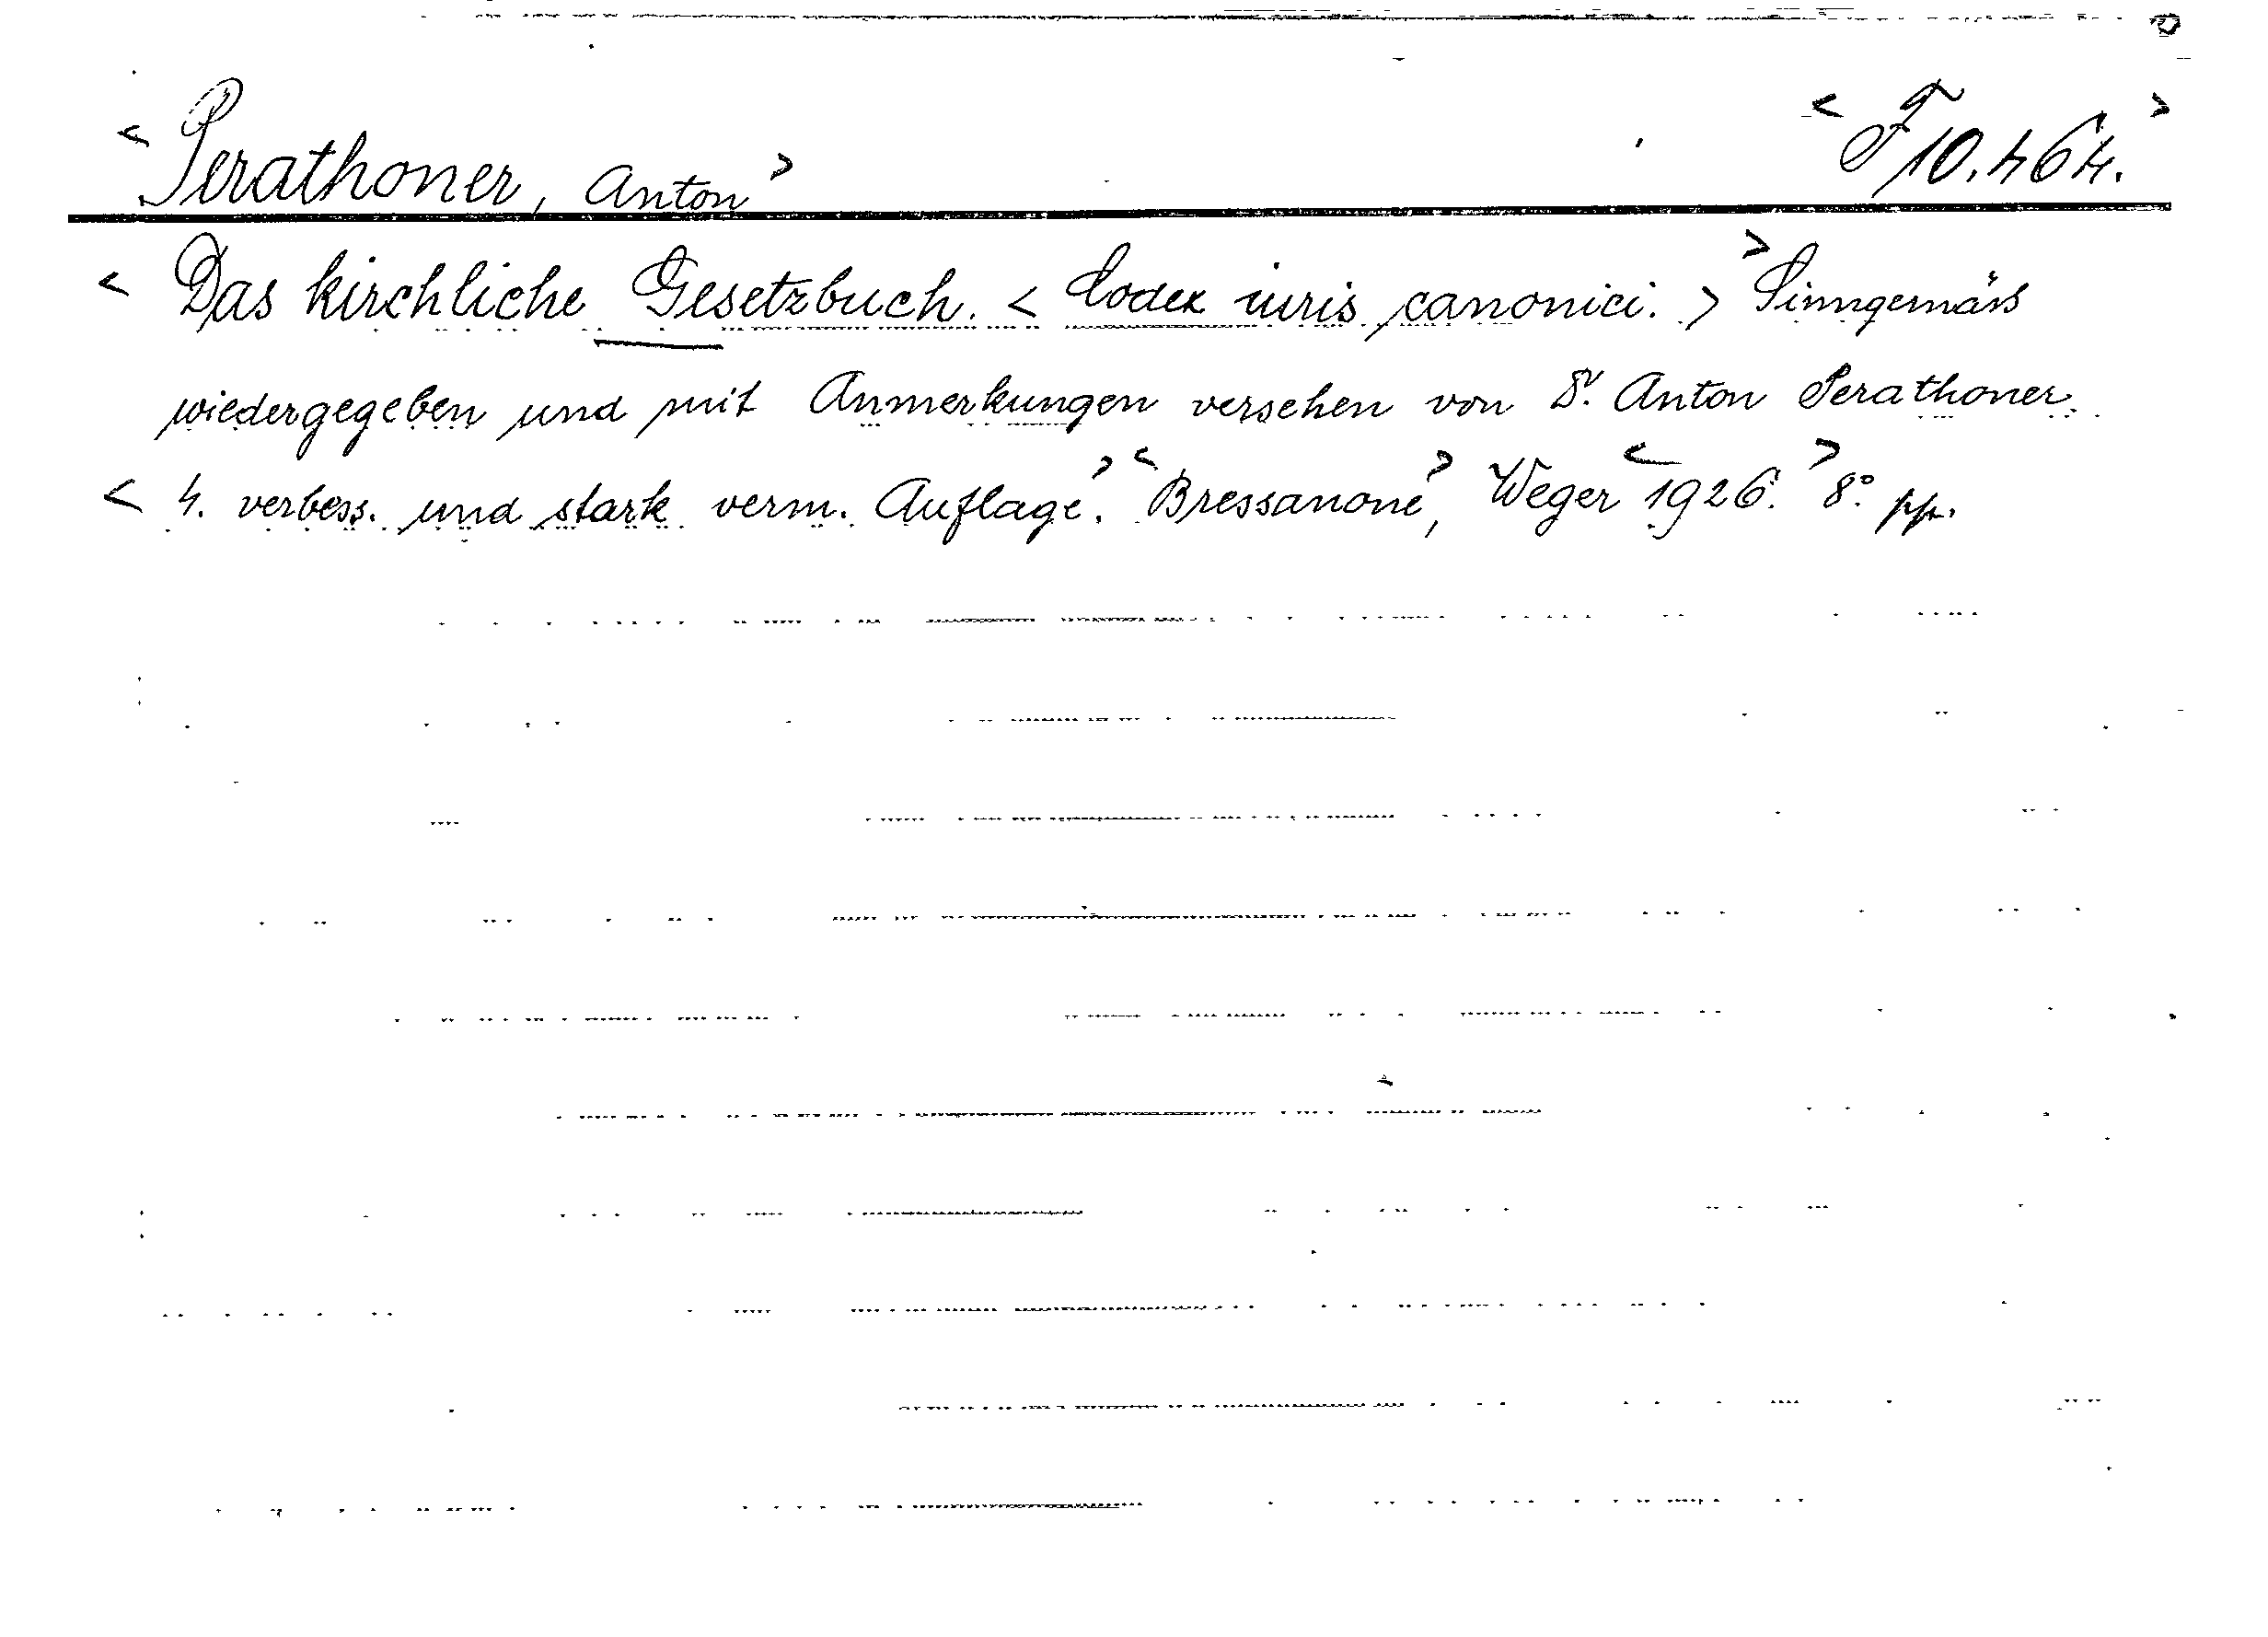 < Perathoner, Anton > < F 10.464. >
< Das kirchliche Gesetzbuch. < Codex iuris canonici. > > Sinngemäss
wiedergegeben und mit Anmerkungen versehen von Dr. Anton Perathoner.
< 4. verbess. und stark verm. Auflage. > < Bressanone >, Weger < 1926. > 8° pp.